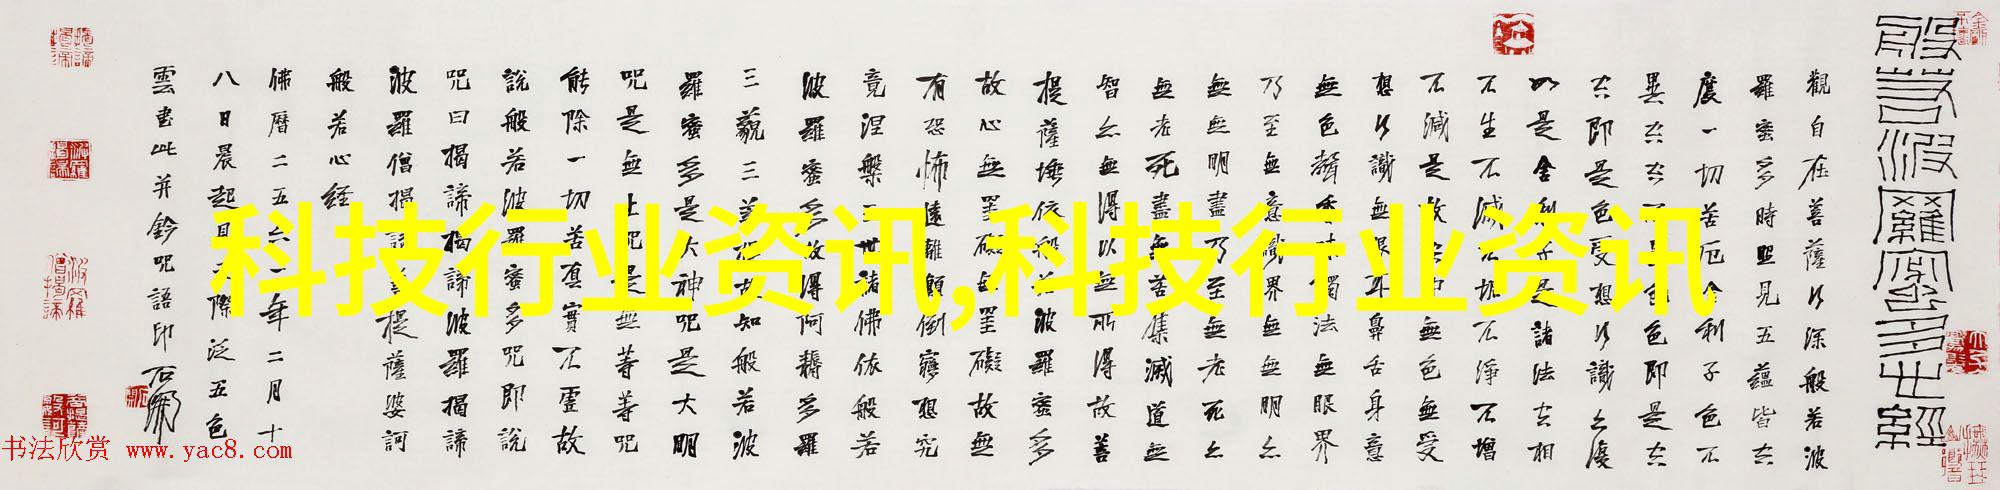 般若波羅蜜多心經
觀自在菩薩行深般若波
羅蜜多時照見五蘊皆空
度一切苦厄舍利子色不
異空空不異色色即是空
空即是色受想行識亦復
如是舍利子是諸法空相
不生不滅不垢不淨不增
不減是故空中無色無受
想行識無眼耳鼻舌身意
無色聲香味觸法無眼界
乃至無意識界無無明亦
無無明盡乃至無老死亦
無老死盡無苦集滅道無
智亦無得以無所得故菩
提薩埵依般若波羅蜜多
故心無罣礙無罣礙故無
有恐怖遠離顛倒夢想究
竟涅槃三世諸佛依般若
波羅蜜多故得阿耨多羅
三藐三菩提故知般若波
羅蜜多是大神咒是大明
咒是無上咒是無等等咒
能除一切苦真實不虛故
說般若波羅蜜多咒即說
咒曰揭諦揭諦波羅揭諦
波羅僧揭諦菩提薩婆訶
般若心經
佛曆二五六一年二月十
八日晨起目天際泛五色
雲書此并鈐咒語印
科技行业资讯,科技行业资讯
书法欣赏 www.yac8.com